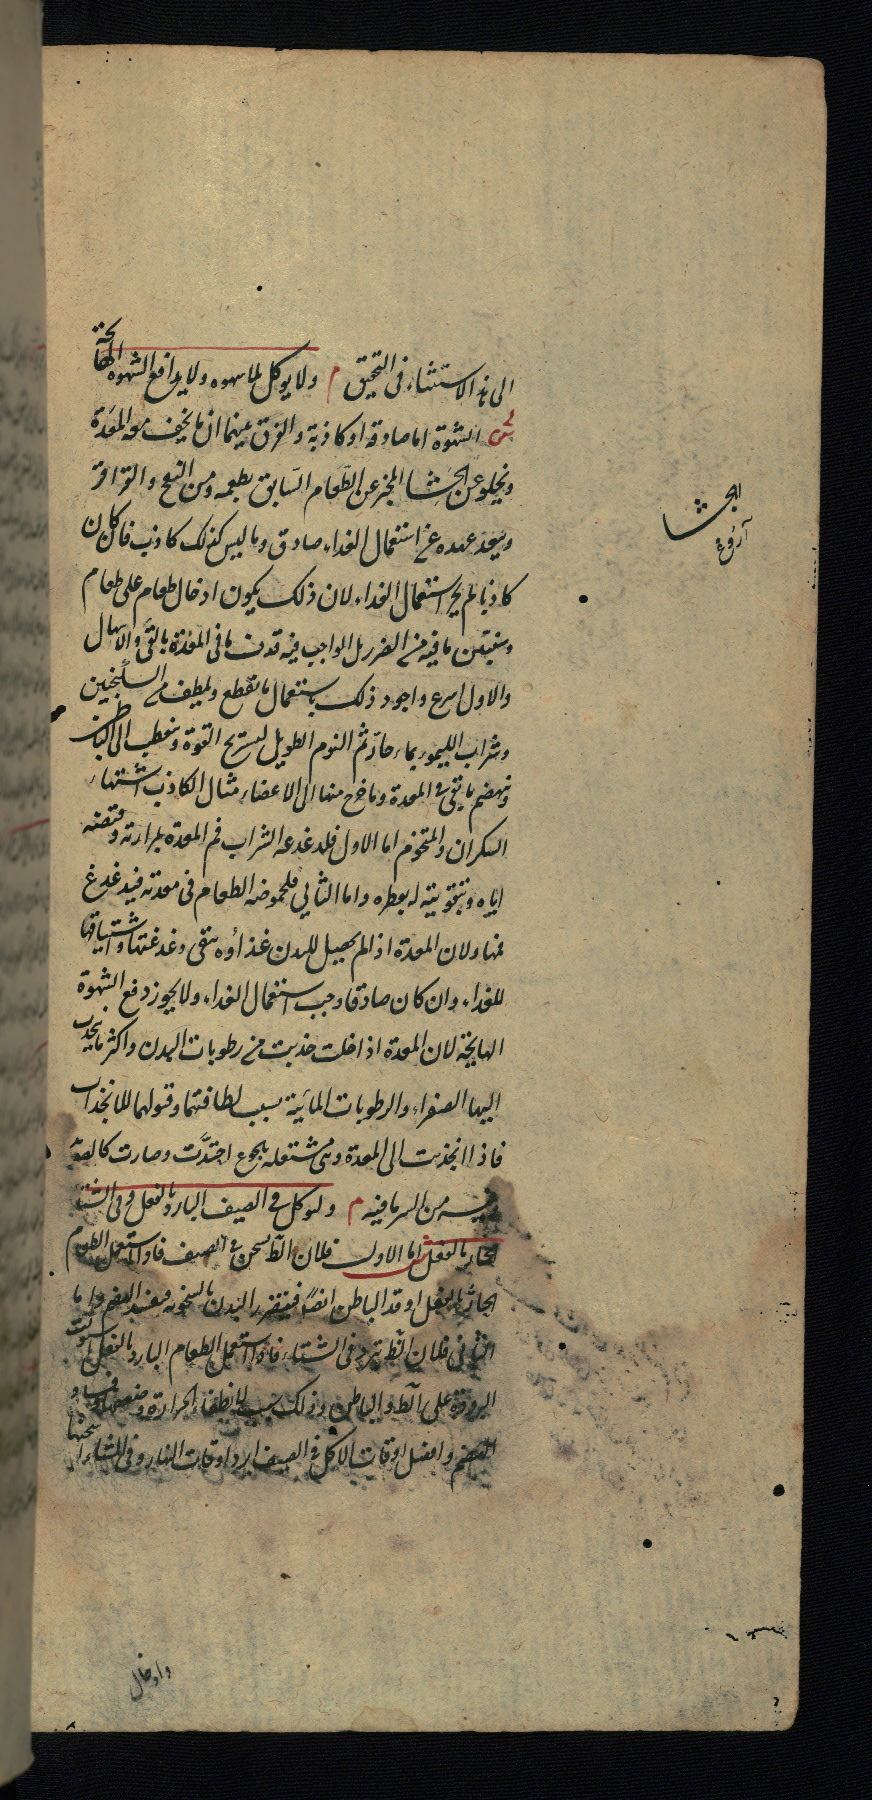 الى هذا الاستثناء فى التحقيق م ولا يوكل بلا شهوه ولا يدافع الشهوة الهائجة
ش الشهوة اما صادقه او كاذبة والفرق بينهما ان ما يخف معه المعدة
ويخلو عن الجشا المخبر عن الطعام السابق بطعمه ومن النفخ والقراقر
ويبعد عهده عن استعمال الغداء صادق وما ليس كذلك كاذب فان كان
كاذبا لم يجز استعمال الغداء لان ذلك يكون ادخال طعام على طعام
وستبين ما فيه من الضرر بل الواجب فيه قذف ما فى المعدة بالقئ والاسهال
والاول اسرع واجود ذلك باستعمال ما يقطع ويلطف من السكنجبين
وشراب الليمو بماء حار ثم النوم الطويل ليستريح القوة وينعطف الى الباطن
وينهضم ما بقى فى المعدة وما خرج منها الى الاعضاء مثال الكاذب اشتهاء
السكران والمتخوم اما الاول فلدغدغه الشراب فم المعدة بمرارته وقبضه
اياه وبتقويته له بعطره واما الثانى فلحموضه الطعام فى معدته فيدغدغ
فمها ولان المعدة اذا لم يحصل للبدن غذاؤه يبقى دغدغتها واشتياقها
للغداء وان كان صادقا وجب استعمال الغداء ولا يجوز دفع الشهوة
الهايجة لان المعدة اذا خلت جذبت من رطوبات البدن واكثر ما ينجذب
اليها الصفراء والرطوبات المائية بسبب لطافتهما وقبولهما للانجذاب
فاذا انجذبت الى المعدة وهى مشتعله بالجوع احتدّت وصارت كالصديد
وفيه من السر ما فيه م وليوكل فى الصيف البارد بالفعل وفى الشتاء
الحار بالفعل ش اما الاول فلان الظ سخن فى الصيف فاذا استعمل الطعام
الحار بالفعل اوقد الباطن ايضًا فيتضرر البدن بالسخونه فيفسد الهضم واما
الثانى فلان الظ تبرد فى الشتاء فاذا استعمل الطعام البارد بالفعل استولت
البرودة على الظ والباطن وذلك سبب لانطفاء الحرارة وضعفها وفساد
الهضم وافضل اوقات الاكل فى الصيف ابرد اوقات النهار وفى الشتاء اسخنها
وادخال
الجشا
آروغ